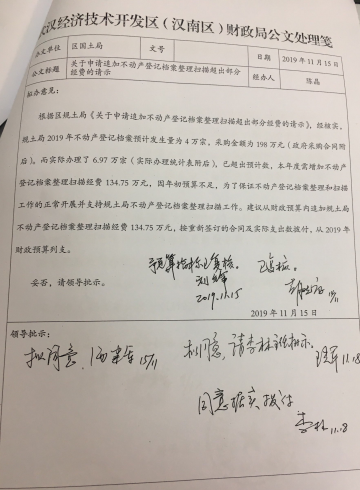 武汉经济技术开发区（汉南区）财政局公文处理笺
公文单位 区国土局 文号 日期 2019年11月15日
公文标题 关于申请追加不动产登记档案整理扫描超出部分经费的请示 经办人 陈晶
拟办意见：
根据区规土局《关于申请追加不动产登记档案整理扫描超出部分经费的请示》，经核实，
规土局2019年不动产登记档案预计发生量为4万宗，采购金额为198万元（政府采购合同附
后）。而实际办理了6.97万宗（实际办理统计表附后），已超出预计数，本年度需增加不动产
登记档案整理扫描经费134.75万元，因年初预算不足，为了保证不动产登记档案整理和扫描
工作的正常开展并支持规土局不动产登记档案整理扫描工作。建议从财政预算内追加规土局
不动产登记档案整理扫描经费134.75万元，按重新签订的合同及实际支出数拨付，从2019年
财政预算列支。
妥否，请领导批示。
预算指标已复核。
2019.11.15
15/11
2019年11月15日
领导批示：
拟同意 15/11
拟同意，请李林 批示。 11.18
同意据实拨付
李林 11.18